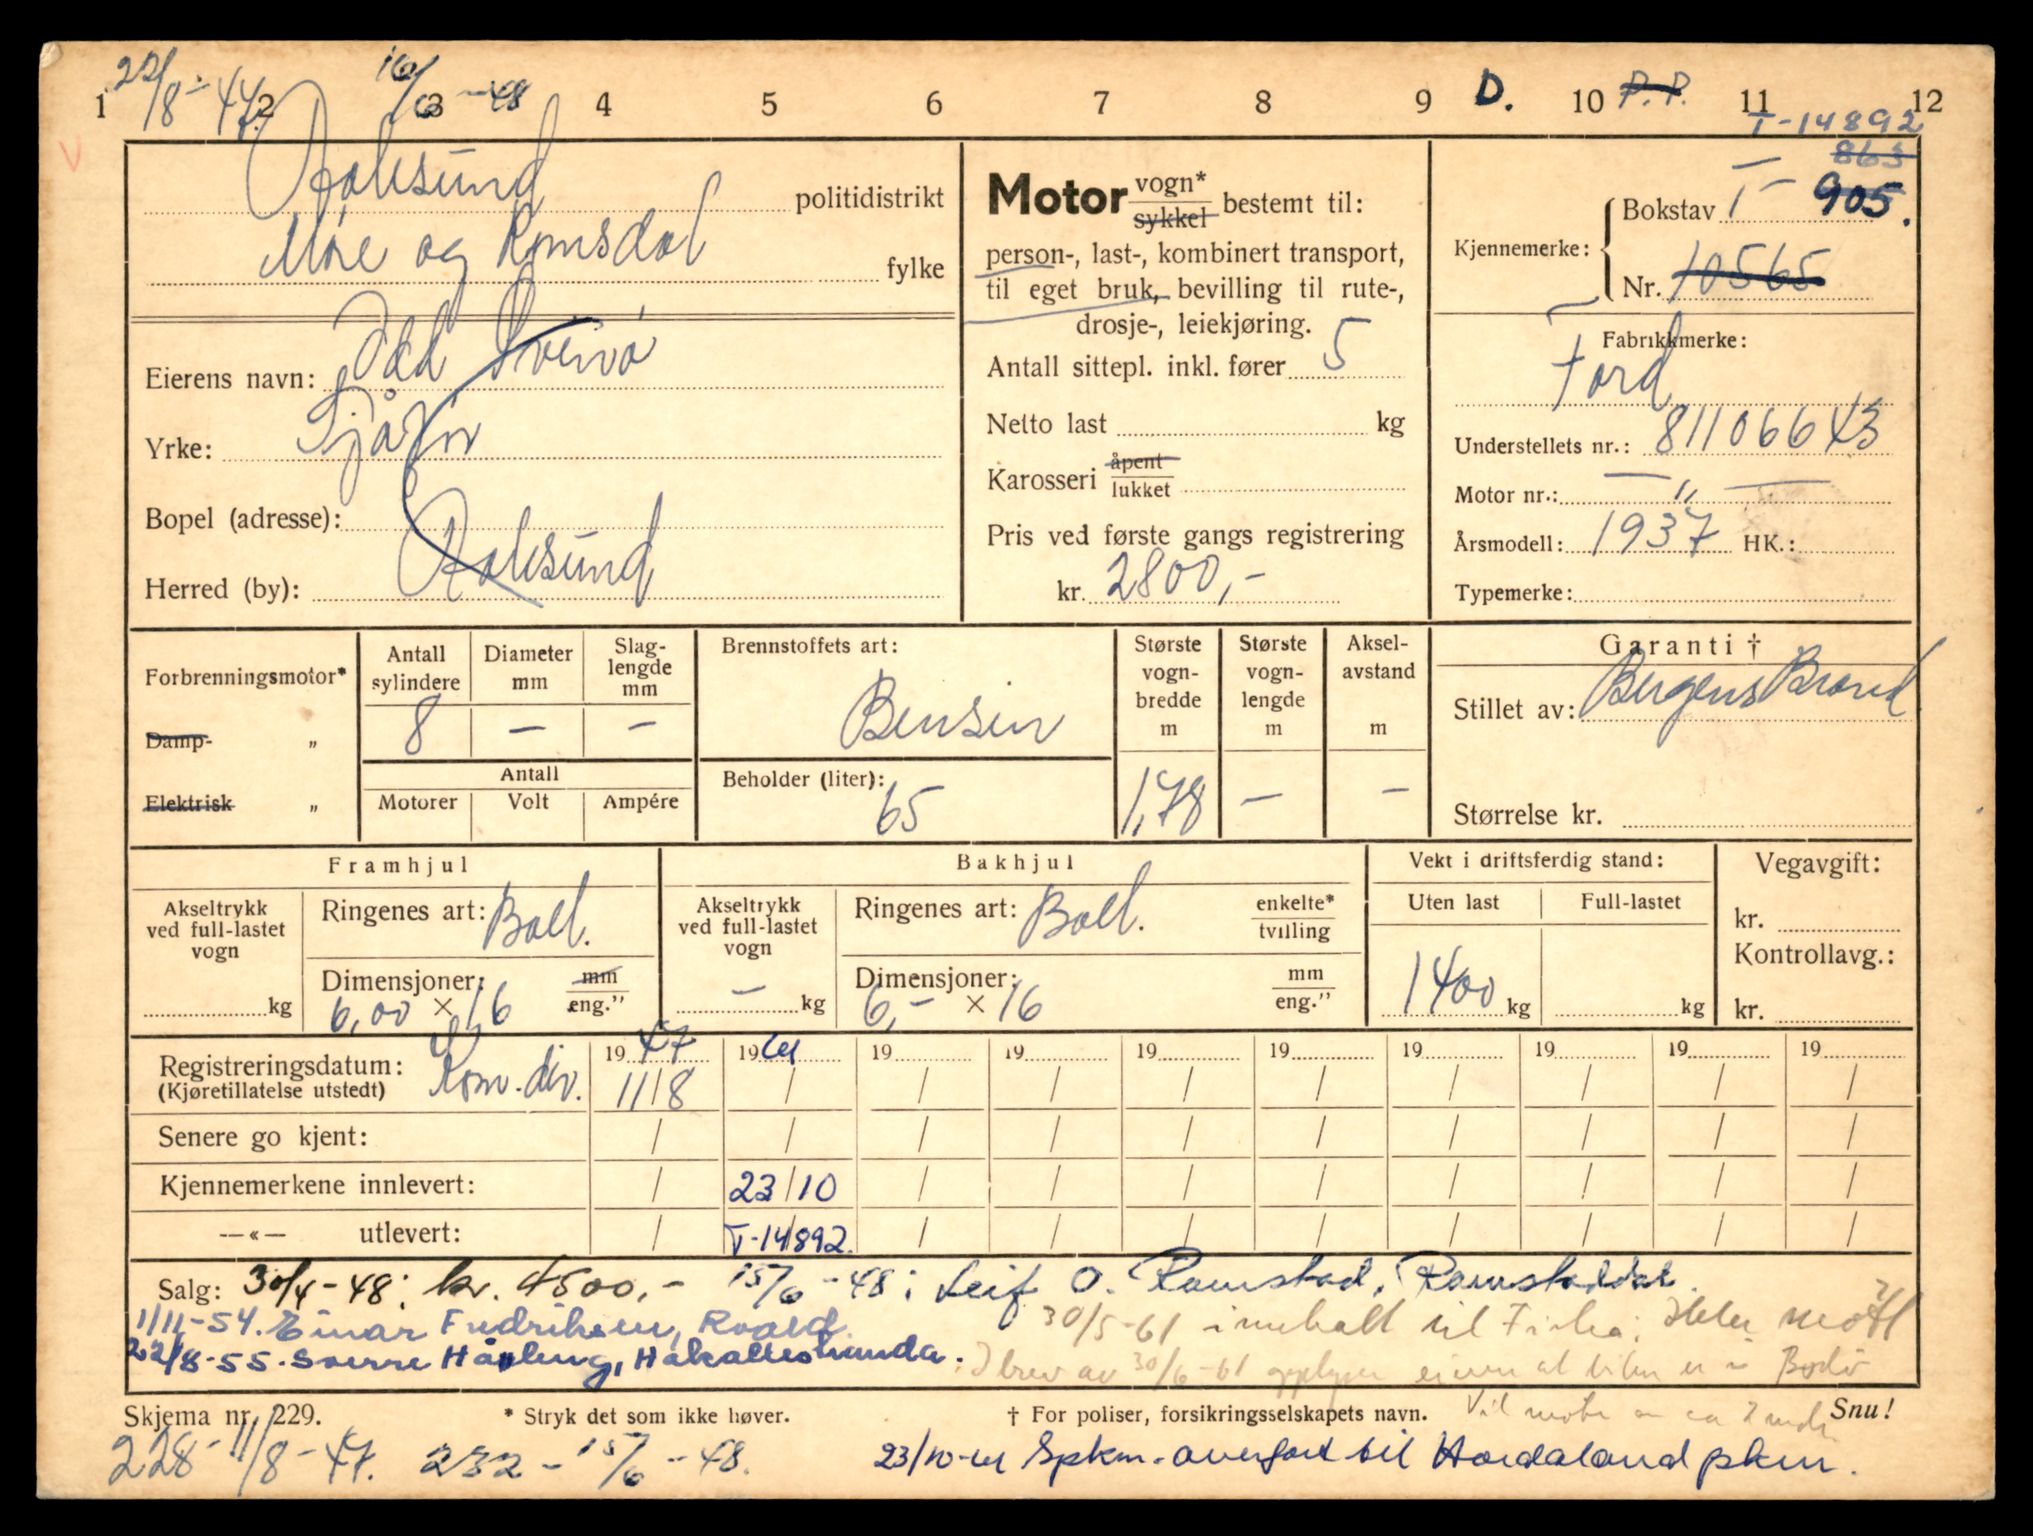 22/8-47. 16/6-48 D. P.P.
1 2 3 4 5 6 7 8 9 10 11 12
T-14892
863
Aalesund politidistrikt
Møre og Romsdal fylke
Eierens navn: Odd
Yrke: Sjåfør
Bopel (adresse):
Herred (by): Aalesund
Motor vogn* sykkel bestemt til:
person-, last-, kombinert transport,
til eget bruk, bevilling til rute-,
drosje-, leiekjøring.
Antall sittepl. inkl. fører 5
Netto last kg
Karosseri åpent lukket
Pris ved første gangs registrering
kr. 2800,-
Kjennemerke: Bokstav T- 905.
Nr. 10565
Fabrikkmerke:
Ford
Understellets nr.: 81106643
Motor nr.: — " —
Årsmodell: 1937 HK.:
Typemerke:
Forbrenningsmotor*
Damp- „
Elektrisk „
Antall sylindere 8
Diameter mm —
Slaglengde mm —
Antall
Motorer Volt Ampére
Brennstoffets art:
Bensin
Beholder (liter): 65
Største vogn-bredde m 1,78
Største vogn-lengde m —
Aksel-avstand m —
Garanti †
Stillet av: Bergens Brand
Størrelse kr.
Framhjul
Akseltrykk ved full-lastet vogn kg
Ringenes art: Ball.
Dimensjoner: 6,00 × 16 mm eng."
Bakhjul
Akseltrykk ved full-lastet vogn — kg
Ringenes art: Ball. enkelte* tvilling
Dimensjoner: 6,- × 16 mm eng."
Vekt i driftsferdig stand:
Uten last Full-lastet
1400 kg kg
Vegavgift:
kr.
Kontrollavg.:
kr.
Registreringsdatum: 19 47 19 61 19 19 19 19 19 19 19 19
(Kjøretillatelse utstedt) Kom. div. 11/8 / / / / / / / / /
Senere go kjent: / / / / / / / / / /
Kjennemerkene innlevert: / 23/10 / / / / / / / /
—«— utlevert: / T-14892. / / / / / / / /
Salg: 30/4-48: kr. 4500,- 15/6-48: Leif O. Ramstad, Ramstaddal.
1/11-54. Einar Fredriksen, Roald. 30/5-61 innkalt til
22/8-55. Sverre Håvling, Håkallestranda. I brev av 30/6-61 opplyser eieren at bilen er i Bodø
Skjema nr. 229. * Stryk det som ikke høver. † For poliser, forsikringsselskapets navn. Snu!
Vil møte om ca 2 mndr.
228-11/8-47. 232-15/6-48. 23/10-61 Spkm. overført til Hordaland pkm.